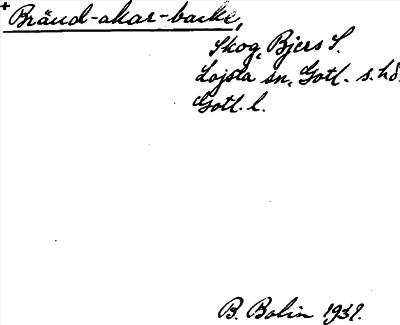 + Bränd-akar-backe,
Skog, Bjers S.
Lojsta sn, Gotl. s. hd.
Gotl. l.
B. Bolin 1931.